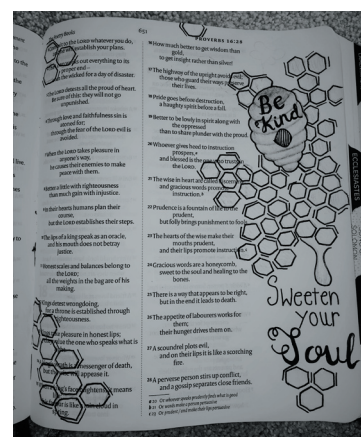 651
PROVERBS 16:26
to the LORD whatever you do,
establish your plans.
works out everything to its
proper end –
the wicked for a day of disaster.
The LORD detests all the proud of heart.
Be sure of this: they will not go
unpunished.
Through love and faithfulness sin is
atoned for;
through the fear of the LORD evil is
avoided.
When the LORD takes pleasure in
anyone's way,
he causes their enemies to make
peace with them.
Better a little with righteousness
than much gain with injustice.
In their hearts humans plan their
course,
but the LORD establishes their steps.
The lips of a king speak as an oracle,
and his mouth does not betray
justice.
Honest scales and balances belong to
the LORD;
all the weights in the bag are of his
making.
Kings detest wrongdoing,
for a throne is established through
righteousness.
pleasure in honest lips;
value the one who speaks what is
is a messenger of death,
but the appease it.
face brightens, it means
is like a rain cloud in
spring.
16 How much better to get wisdom than
gold,
to get insight rather than silver!
17 The highway of the upright avoids evil;
those who guard their ways preserve
their lives.
18 Pride goes before destruction,
a haughty spirit before a fall.
19 Better to be lowly in spirit along with
the oppressed
than to share plunder with the proud.
20 Whoever gives heed to instruction
prospers,
and blessed is the one who trusts in
the LORD.
21 The wise in heart are called discerning,
and gracious words promote
instruction.
22 Prudence is a fountain of life to the
prudent,
but folly brings punishment to fools.
23 The hearts of the wise make their
mouths prudent,
and their lips promote instruction.
24 Gracious words are a honeycomb,
sweet to the soul and healing to the
bones.
25 There is a way that appears to be right,
but in the end it leads to death.
26 The appetite of labourers works for
them;
their hunger drives them on.
27 A scoundrel plots evil,
and on their lips it is like a scorching
fire.
28 A perverse person stirs up conflict,
and a gossip separates close friends.
Be
Kind
Sweeten
your
Soul
ECCLESIASTES